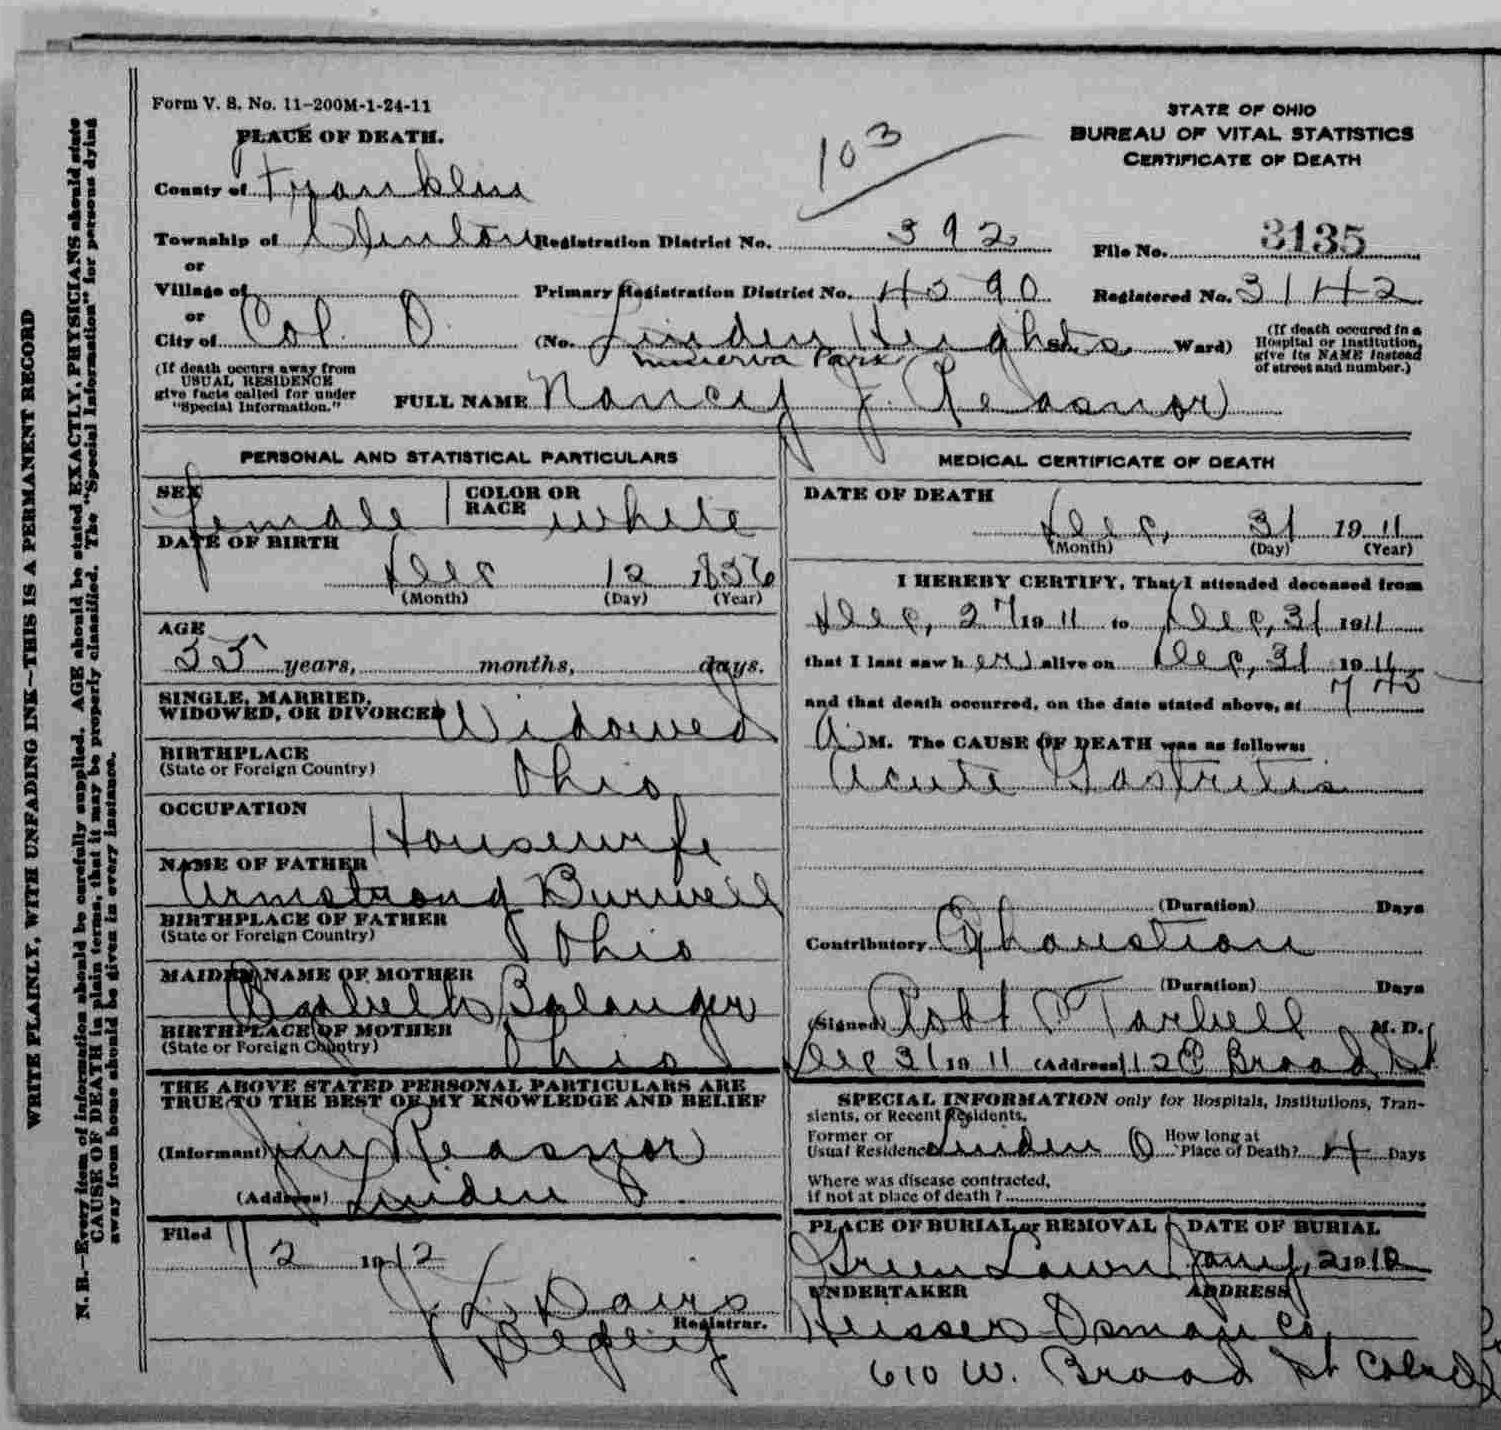 Form V. S. No. 11-200M-1-24-11
PLACE OF DEATH.
STATE OF OHIO
BUREAU OF VITAL STATISTICS
CERTIFICATE OF DEATH
103
County of Franklin
Township of Clinton Registration District No. 392 File No. 3135
or
Village of Primary Registration District No. 4090 Registered No. 3142
or
City of Col. O. (No. Linden Heights St. Ward) (If death occured in a Hospital or Institution, give its NAME instead of street and number.)
Minerva Park
(If death occurs away from USUAL RESIDENCE give facts called for under "Special Information.")
FULL NAME Nancy J. Reasnor
PERSONAL AND STATISTICAL PARTICULARS
SEX female COLOR OR RACE white
DATE OF BIRTH
Dec 12 1856
(Month) (Day) (Year)
AGE
55 years, months, days.
SINGLE, MARRIED, WIDOWED, OR DIVORCED Widowed
BIRTHPLACE
(State or Foreign Country) Ohio
OCCUPATION Housewife
NAME OF FATHER
Armstrong Burwell
BIRTHPLACE OF FATHER
(State or Foreign Country) Ohio
MAIDEN NAME OF MOTHER
Balanger
BIRTHPLACE OF MOTHER
(State or Foreign Country) Ohio
THE ABOVE STATED PERSONAL PARTICULARS ARE
TRUE TO THE BEST OF MY KNOWLEDGE AND BELIEF
(Informant) Jim Reasnor
(Address) Linden O.
Filed 1/2 1912
Davis
Registrar.
Depty
MEDICAL CERTIFICATE OF DEATH
DATE OF DEATH
Dec, 31 1911
(Month) (Day) (Year)
I HEREBY CERTIFY, That I attended deceased from
Dec, 27 1911 to Dec, 31 1911
that I last saw her alive on Dec, 31 1911
and that death occurred, on the date stated above, at 7 45
A M. The CAUSE OF DEATH was as follows:
Acute Gastritis
(Duration) Days
Contributory Exhaustion
(Duration) Days
(Signed) Robt Tarbell M. D.
Dec 31 1911 (Address) 112 E Broad St
SPECIAL INFORMATION only for Hospitals, Institutions, Tran-
sients, or Recent Residents.
Former or Usual Residence Linden O How long at Place of Death? 4 Days
Where was disease contracted,
if not at place of death?
PLACE OF BURIAL or REMOVAL DATE OF BURIAL
Green Lawn Jany, 2 1912
UNDERTAKER ADDRESS
Osman Co,
610 W. Broad St
WRITE PLAINLY, WITH UNFADING INK—THIS IS A PERMANENT RECORD
N. B.—Every item of information should be carefully supplied. AGE should be stated EXACTLY. PHYSICIANS should state
CAUSE OF DEATH in plain terms, that it may be properly classified. The "Special Information" for persons dying
away from home should be given in every instance.